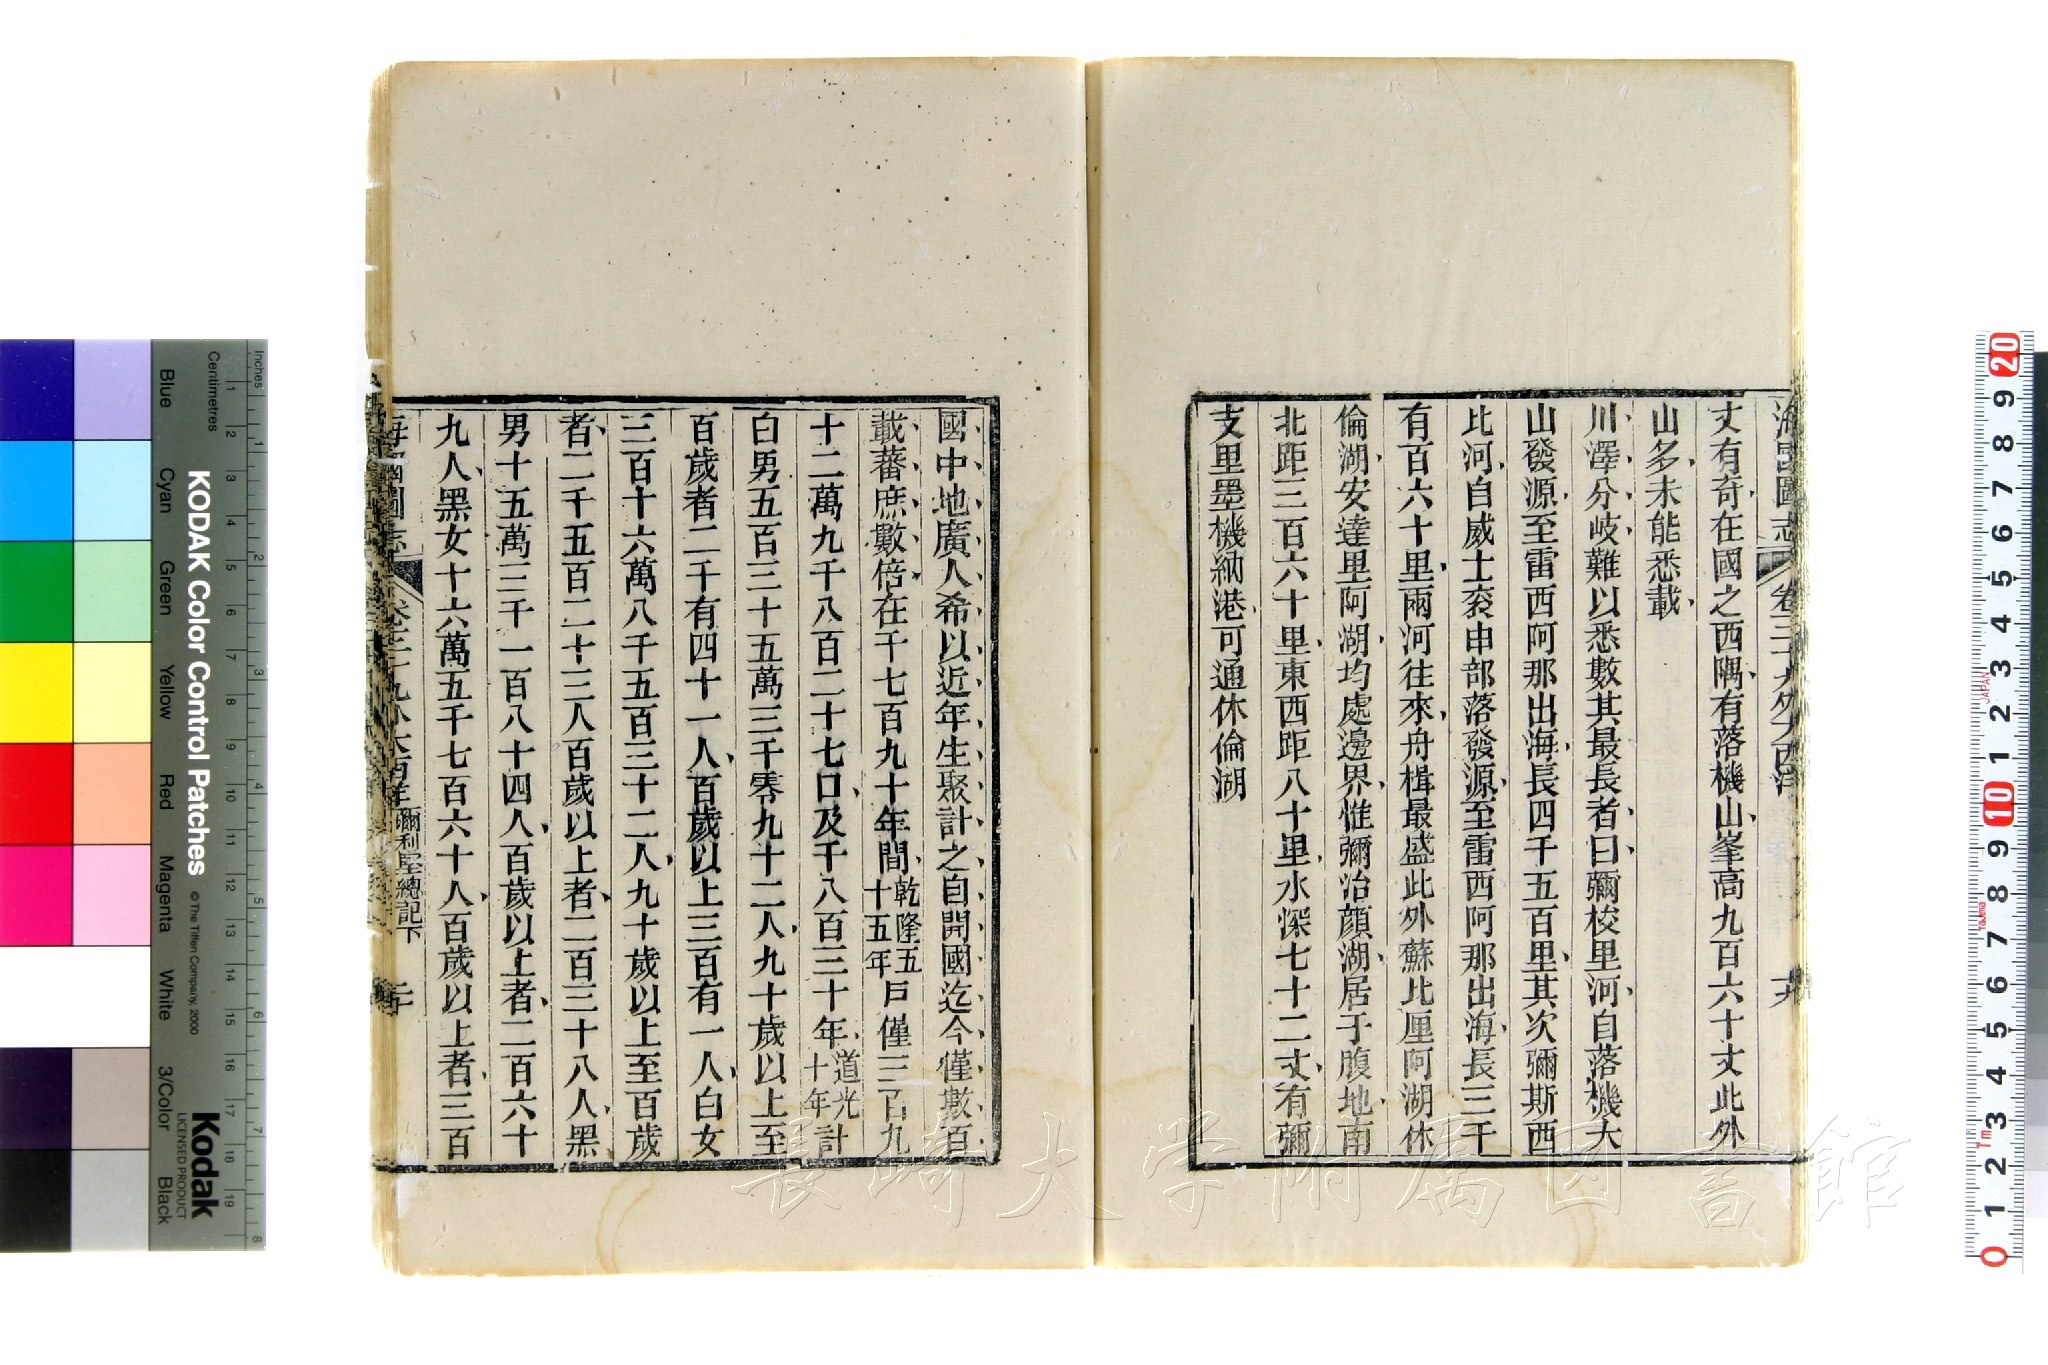 海國圖志 卷三十九 外大西洋 十九
丈有奇在國之西隅有落機山峯高九百六十丈此外
山多未能悉載
川澤分岐難以悉數其最長者曰彌梭里河自落機大
山發源至雷西阿那出海長四千五百里其次彌斯西
比河自威士衮申部落發源至雷西阿那出海長三千
有百六十里兩河往來舟楫最盛此外蘇比厘阿湖休
倫湖安達里阿湖均處邊界惟彌治顏湖居于腹地南
北距三百六十里東西距八十里水深七十二丈有彌
支里墨機納港可通休倫湖
國中地廣人希以近年生聚計之自開國迄今僅數百
載蕃庶數倍在千七百九十年間乾隆五十五年戶僅三百九
十二萬九千八百二十七口及千八百三十年道光十年計
白男五百三十五萬三千零九十二人九十歲以上至
百歲者二千有四十一人百歲以上三百有一人白女
三百十六萬八千五百三十二人九十歲以上至百歲
者二千五百二十三人百歲以上者二百三十八人黑
男十五萬三千一百八十四人百歲以上者二百六十
九人黑女十六萬五千七百六十人百歲以上者三百
海國圖志 卷三十九 外大西洋 彌利堅總記下 二十
長崎大学附属図書館
KODAK Color Control Patches
© The Tiffen Company, 2000
Kodak
LICENSED PRODUCT
Inches
Centimetres
Blue Cyan Green Yellow Red Magenta White 3/Color Black
1 2 3 4 5 6 7 8 9 10 11 12 13 14 15 16 17 18 19
1 2 3 4 5 6 7 8
20 9 8 7 6 5 4 3 2 1 10 9 8 7 6 5 4 3 2 1 0
JAPAN